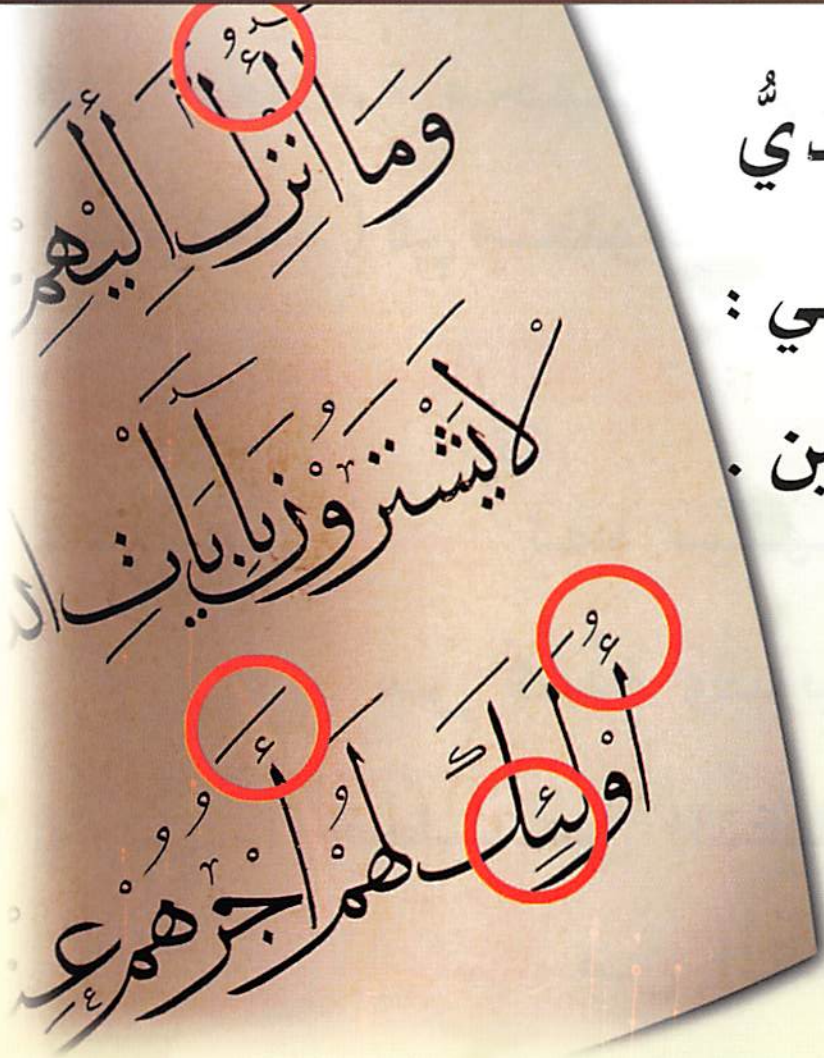 وَمَا أُنْزِلَ إِلَيْهِمْ
لَا يَشْتَرُوْنَ بِآيَاتِ
أُوْلَئِكَ لَهُمْ أَجْرُهُمْ